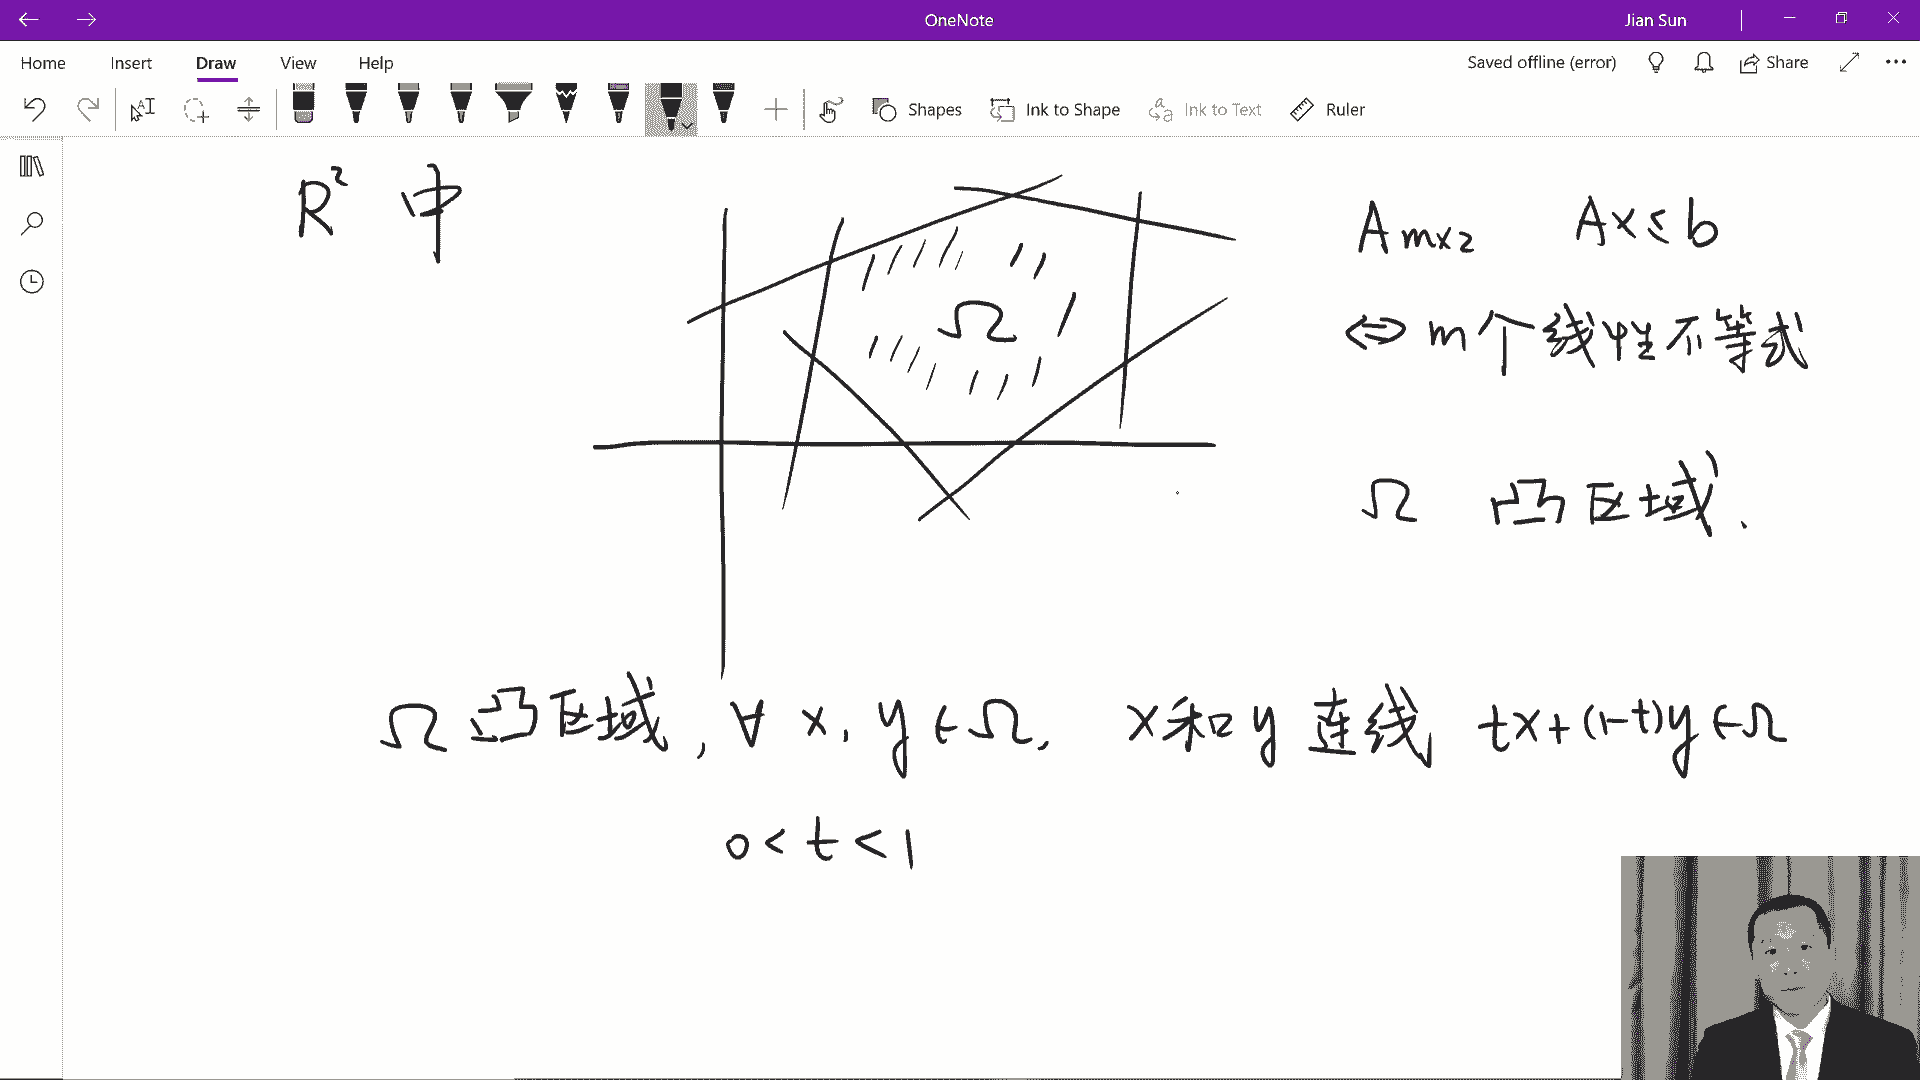 OneNote
Jian Sun
Home Insert Draw View Help
Saved offline (error) Share
Shapes Ink to Shape Ink to Text Ruler
R² 中
Ω
A m×2 Ax ≤ b
⇔ m个线性不等式
Ω 凸区域.
Ω 凸区域, ∀ x, y ∈ Ω, x和y连线 tx+(1-t)y ∈ Ω
0 < t < 1